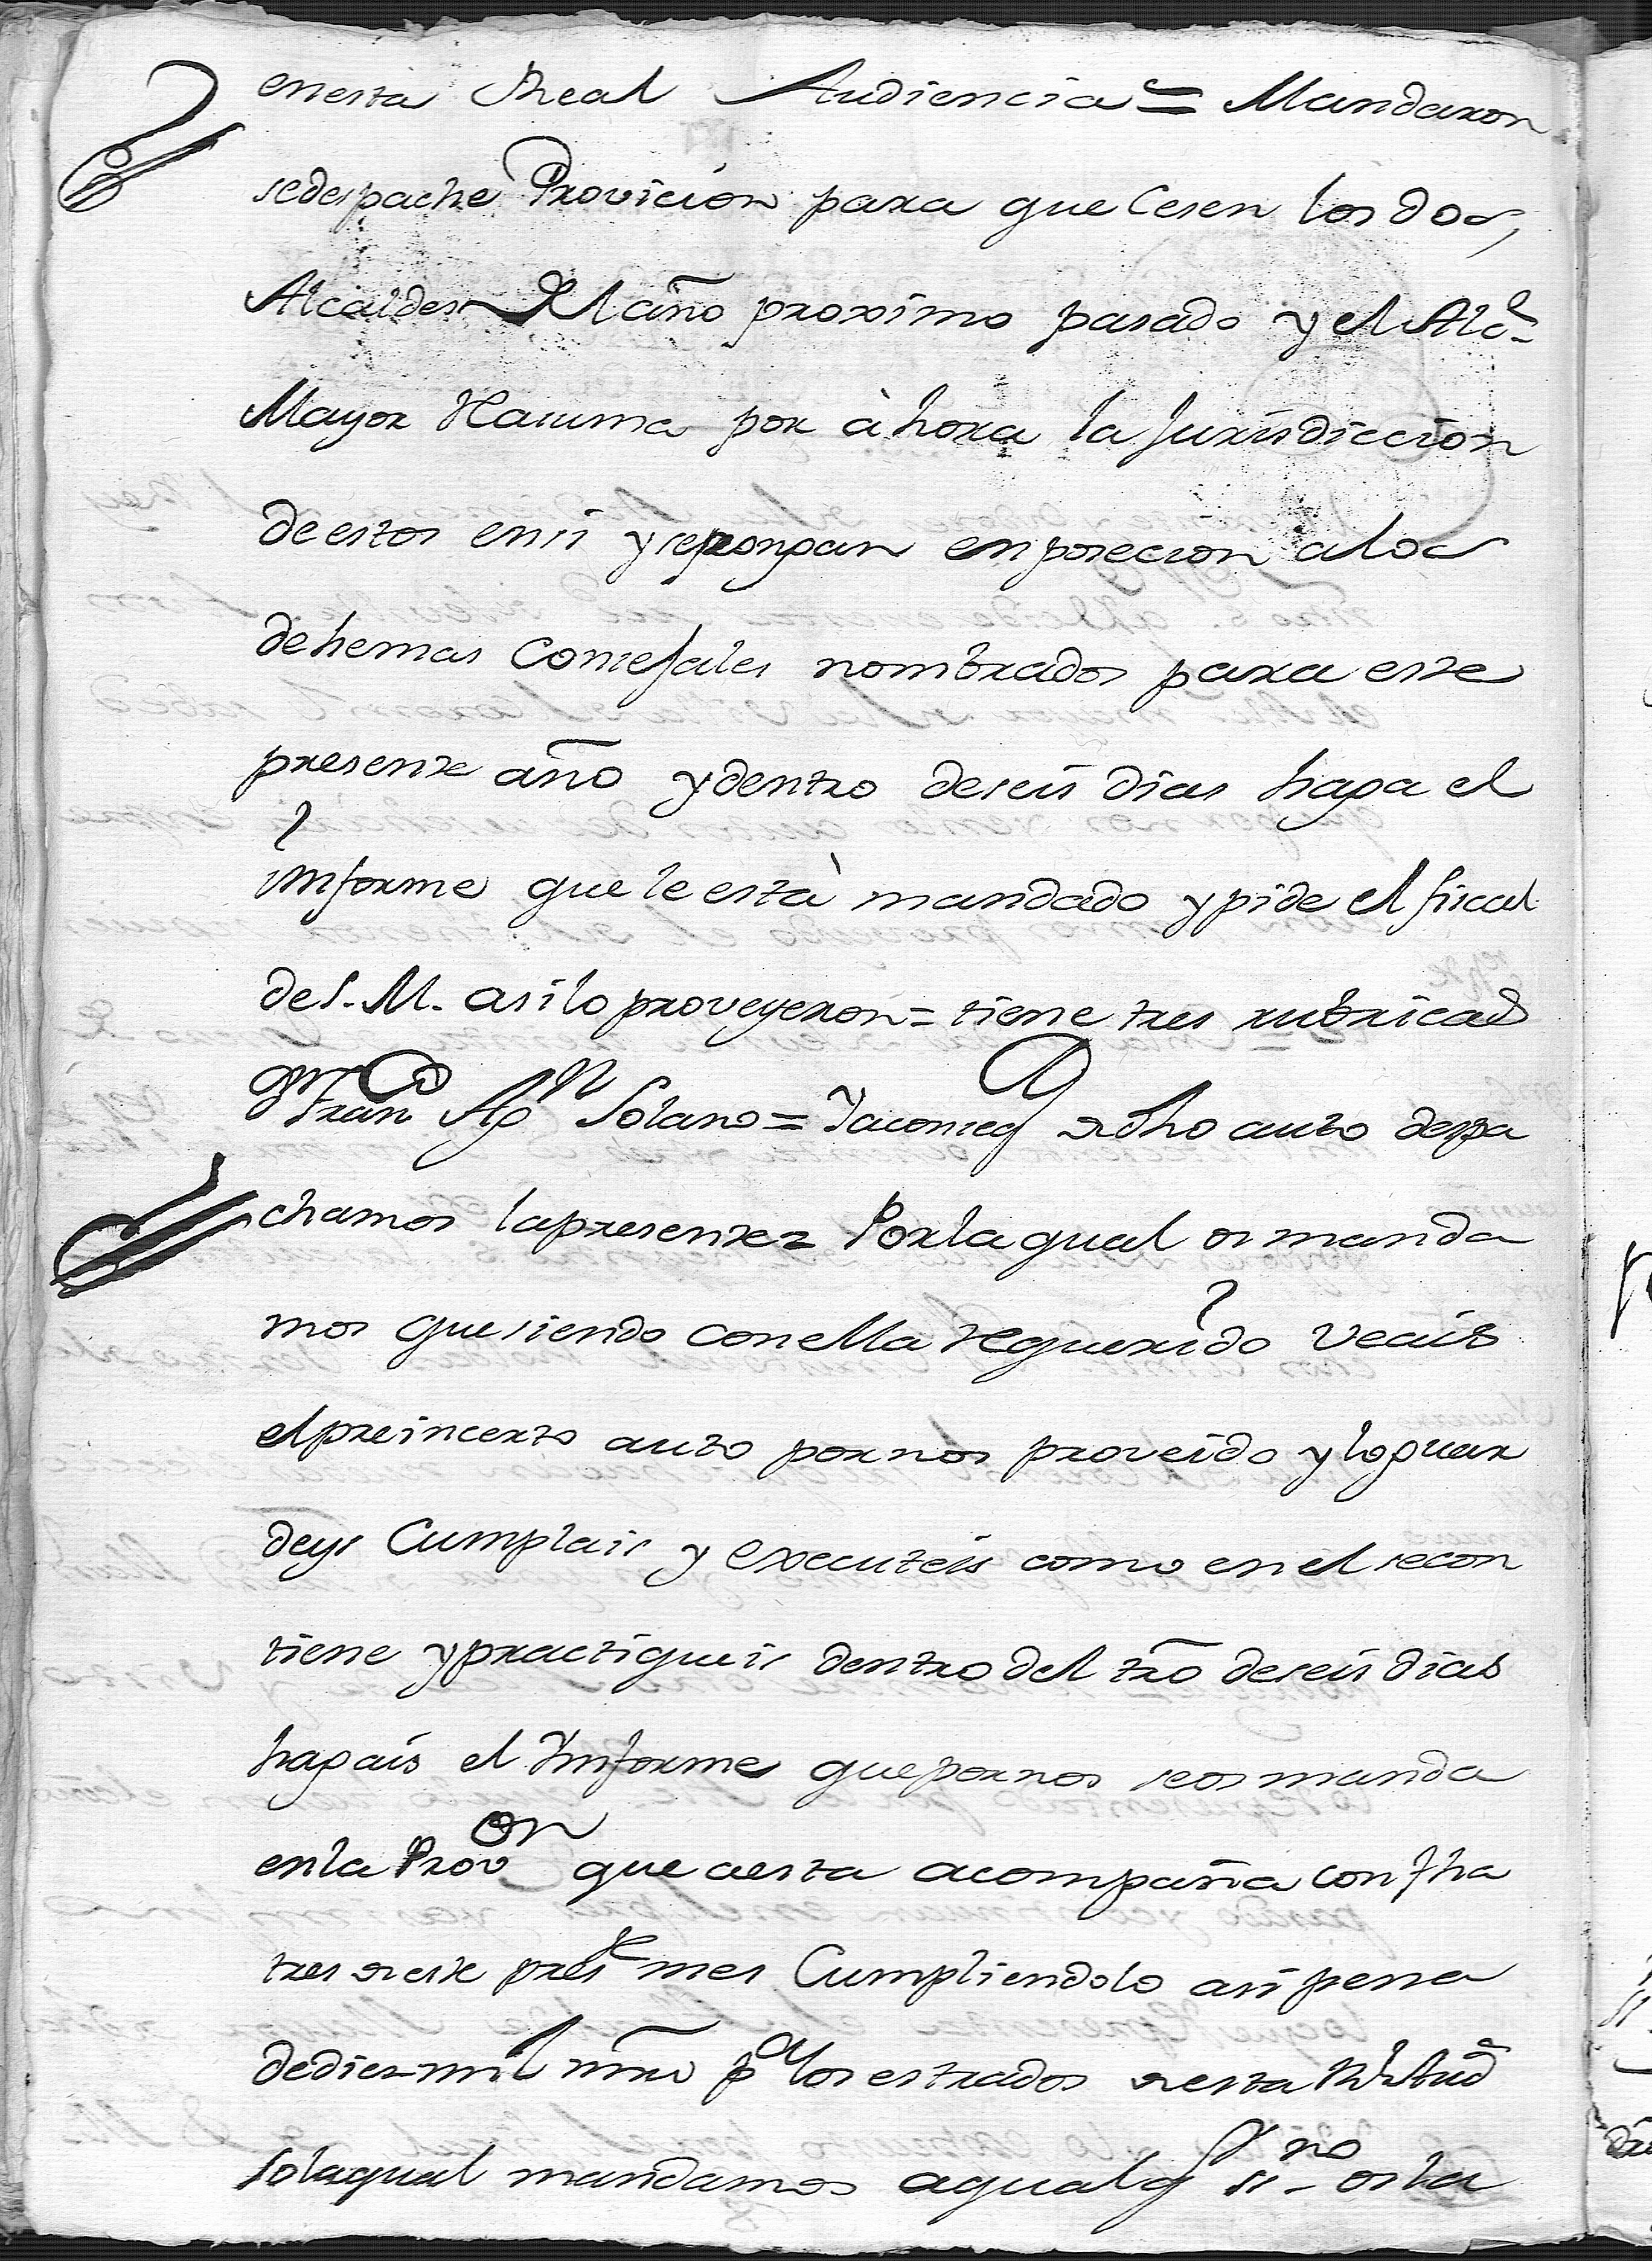 en esta Rreal Audiencia = Mandaron
se despache Provicion para que Cesen los dos,
Alcaldes del año proximo pasado y el Alc.e
Mayor Rasuma por àhora la Jurisdiccion
de estos en si y se pongan en posecion a los
dehemas Consejales nombrados para este
presente año y dentro de seis dias haga el
informe que le està mandado y pide el fiscal
de S. M. asi lo proveyeron = tiene tres rubricas
Fran.co Ap.n Solano = Y a conseq.a de dho auto despa
chamos la presente = Por la qual os manda
mos que siendo con ella Requerido Veais
el preincerto auto por nos proveido y lo guar
deys Cumplais y executeis como en el se con
tiene y practiqueis dentro del tr̃o de seis dias
hagais el Ynforme que por nos se os manda
en la Prov.on que a esta acompaña con fha
tres de este pres.te mes Cumpliendolo asi pena
de diez mil mr̃s p.a los estrados de esta Rl Aud.a
so la qual mandamos a qualq.r ss.no os la